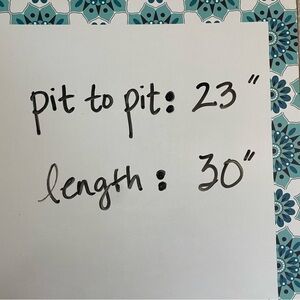 pit to pit: 23"
length: 30"